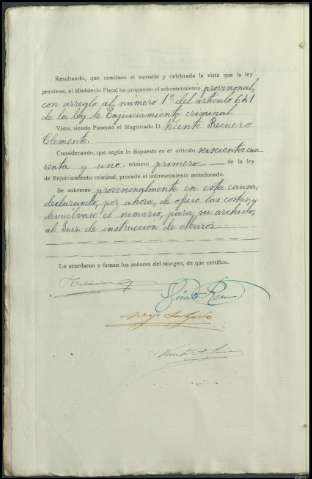 Resultando, que concluso el sumario y celebrada la vista que la ley
previene, el Ministerio Fiscal ha propuesto el sobreseimiento provisional,
con arreglo al número 1º del artículo 641
de la ley de Enjuiciamiento criminal.
Visto, siendo Ponente el Magistrado D. Vicente Recuero
Clemente.
Considerando, que según lo dispuesto en el artículo seiscientos cua
renta y uno, número primero de la ley
de Enjuiciamiento criminal, procede el sobreseimiento mencionado.
Se sobresee provisionalmente en esta causa,
declarando, por ahora, de oficio las costas, y
devuélvase el sumario, para su archivo,
al Juez de instrucción de Muros.
Lo acordaron y firman los señores del margen, de que certifico.